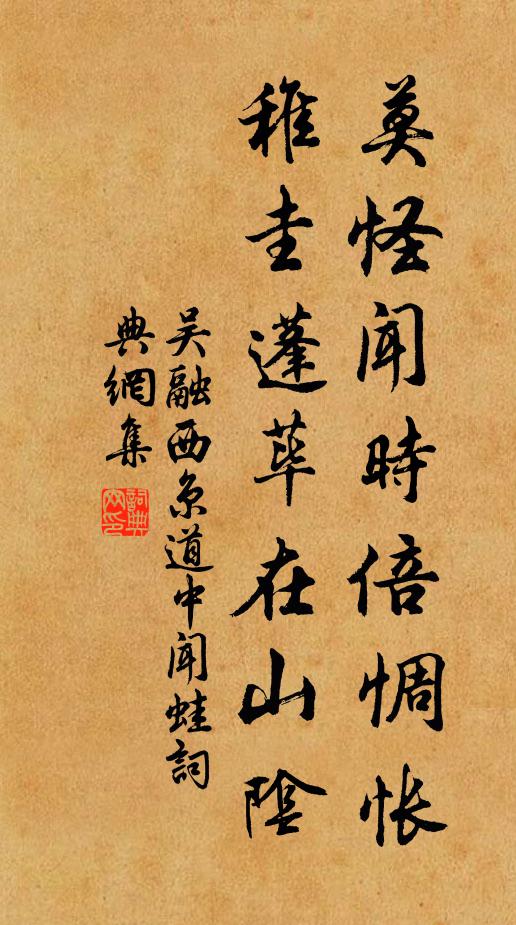 莫怪闻時倍惆怅
稚圭蓬荜在山陰
吴融西京道中闻蛙詞
典網集
詞典网印